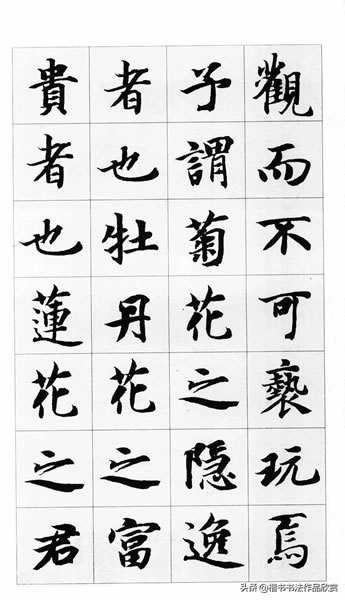 觀而不可褻玩焉
予謂菊花之隐逸
者也牡丹花之富
貴者也蓮花之君
头条@楷书书法作品欣赏